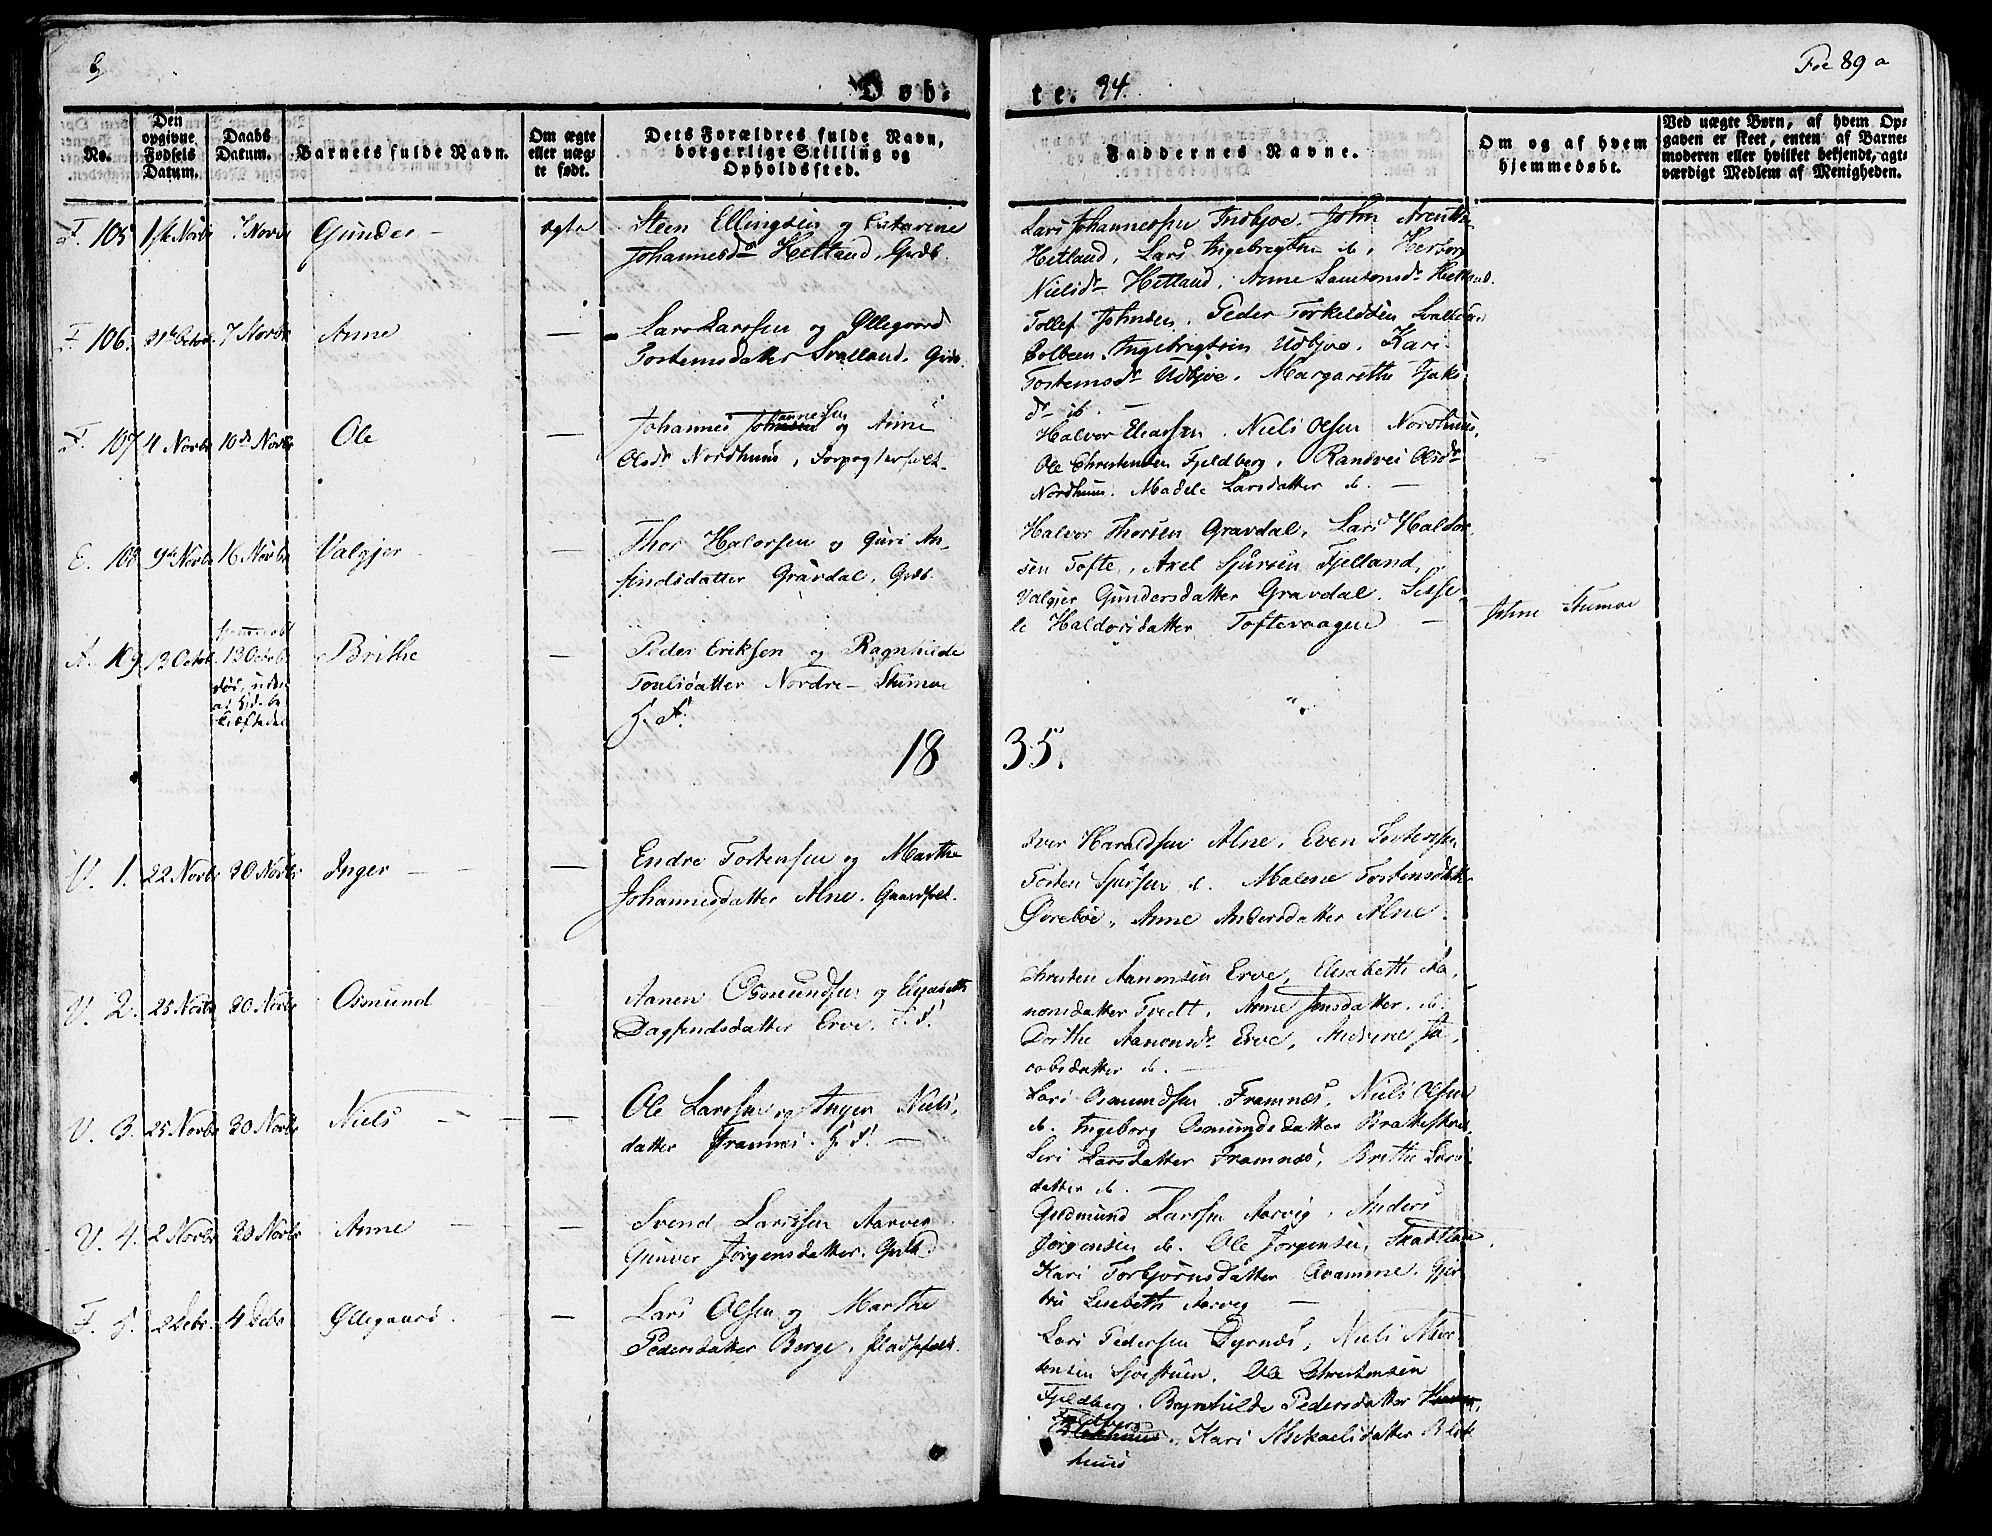 Døb- te. 34.
Foe 89 a
No.
Den opgivne Fødsels Datum.
Daabs Datum.
Barnets fulde Navn.
Om ægte eller uæg- te født.
Dets Forældres fulde Navn, borgerlige Stilling og Opholdssted.
Faddernes Navne.
Om og af hvem hjemmedøbt.
Ved uægte Børn, af hvem Op-
gaven er skeet, enten af Barne-
moderen eller hvilket bekjendt, agt-
værdigt Medlem af Menigheden.
F. 105 1ste Novbr 7 Novbr Gunder - ægte
Steen Ellingsen og Catarine
Johannesdr Hetland, Grdb.
Lars Johannessen Indbjoe, John
Hetland, Lars Ingebregtsen do, Herborg
Nielsdr Hetland, Anne Samsonsdr Hetland.
F. 106. 31te Octob. 7 Novbr Anne —
Lars Larssen og Øllegaard
Tostensdatter Svalland. Grdb.
Tollef Johnsen, Peder Torkeldsen
Ingebregtsen Udbjoe, Kari
Tostensdr Udbjoe, Margarethe
dr ib. —
F. 107 4 Novbr 10de Novbr Ole —
Johannes Johannessen og Anne
Olsdr Nordhuus, Forpagterfolk
Halvor Eliassen, Niels Olsen Nordhuus,
Ole Christensen Fjeldberg, Randvei Olsdr
Nordhuus. Madele Larsdatter do. —
E. 108 9de Novbr 16 Novbr Valgjer —
Thor Halorsen og Guri An-
findsdatter Gravdal, Grdb.
Halvor Thorsen Gravdal, Lars Haldor
sen Tofte, Axel Sjursen Fjelland,
Valgjer Gundersdatter Gravdal, Sisse-
le Haldorsdatter Toftevaagen —
A. 109 13 Octob. 13 Octobr Brithe —
Peder Eriksen og Ragnhilde
datter Nordre Stumoe
Stumoe
18 35.
V. 1. 22 Novbr 30 Novbr Inger — —
Endre Tostensen og Marthe
Johannesdatter Alne. Gaardfolk.
Iver Haraldsen Alne, Even Tostensen
Tosten Sjursen do. Malene Tostensdatter
Øvreboe, Anne Andersdatter Alne.
V. 2. 25 Novbr 30 Novbr Osmund
Aanen Osmundsen og Elisabeth
Dagfindsdatter Erve.
Christen Aanonsen Erve, Elisabeth Aa-
nonsdatter Tvedt, Anne Jensdatter do
Dorthe Aanonsdr Erve, Andrine Ja-
cobsdatter do. —
V. 3. 25 Novbr 30 Novbr Niels — —
Ole Larssen og Inger Niels-
datter Framnes. —
Lars Osmundsen Framnes, Niels Olsen
do. Ingeborg Osmundsdatter
Siri Larsdatter Framnes, Brithe Lars-
datter do.
V. 4. 2 Novbr 30 Novbr Anne — —
Svend Larssen Aarvig
Gunver Jørgensdatter. Grdb
Gudmund Larssen Aarvig, Anders
Jørgensen do. Ole Jørgensen,
Kari Torbjørnsdatter Qvamme,
Lisebeth Aarvig —
F. 5. 2 Decbr. 4 Decbr Øllegaard. —
Lars Olsen og Marthe
Pedersdatter Borge, Pladsfolk.
Lars Pedersen Dyrnes, Niels Mor-
tensen Sjoestuen, Ole Christensen
Fjeldberg. Brynhilde Pedersdatter
Fjeldberg, Kari Mikaelsdatter Blik-
huus